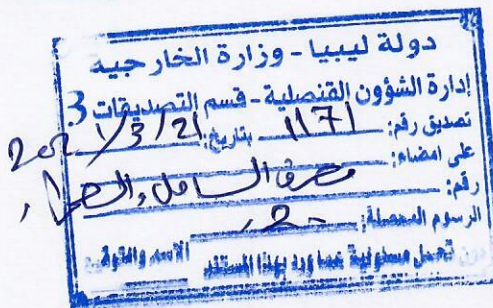 دولة ليبيا - وزارة الخارجية
إدارة الشؤون القنصلية - قسم التصديقات 3
تصديق رقم: 1171 بتاريخ: 2021/3/21
على امضاء: مصرف الساحل والصحراء
رقم:
الرسوم المحصلة:
دون تحمل مسئولية عما ورد بهذا المستند
الاسم والتوقيع